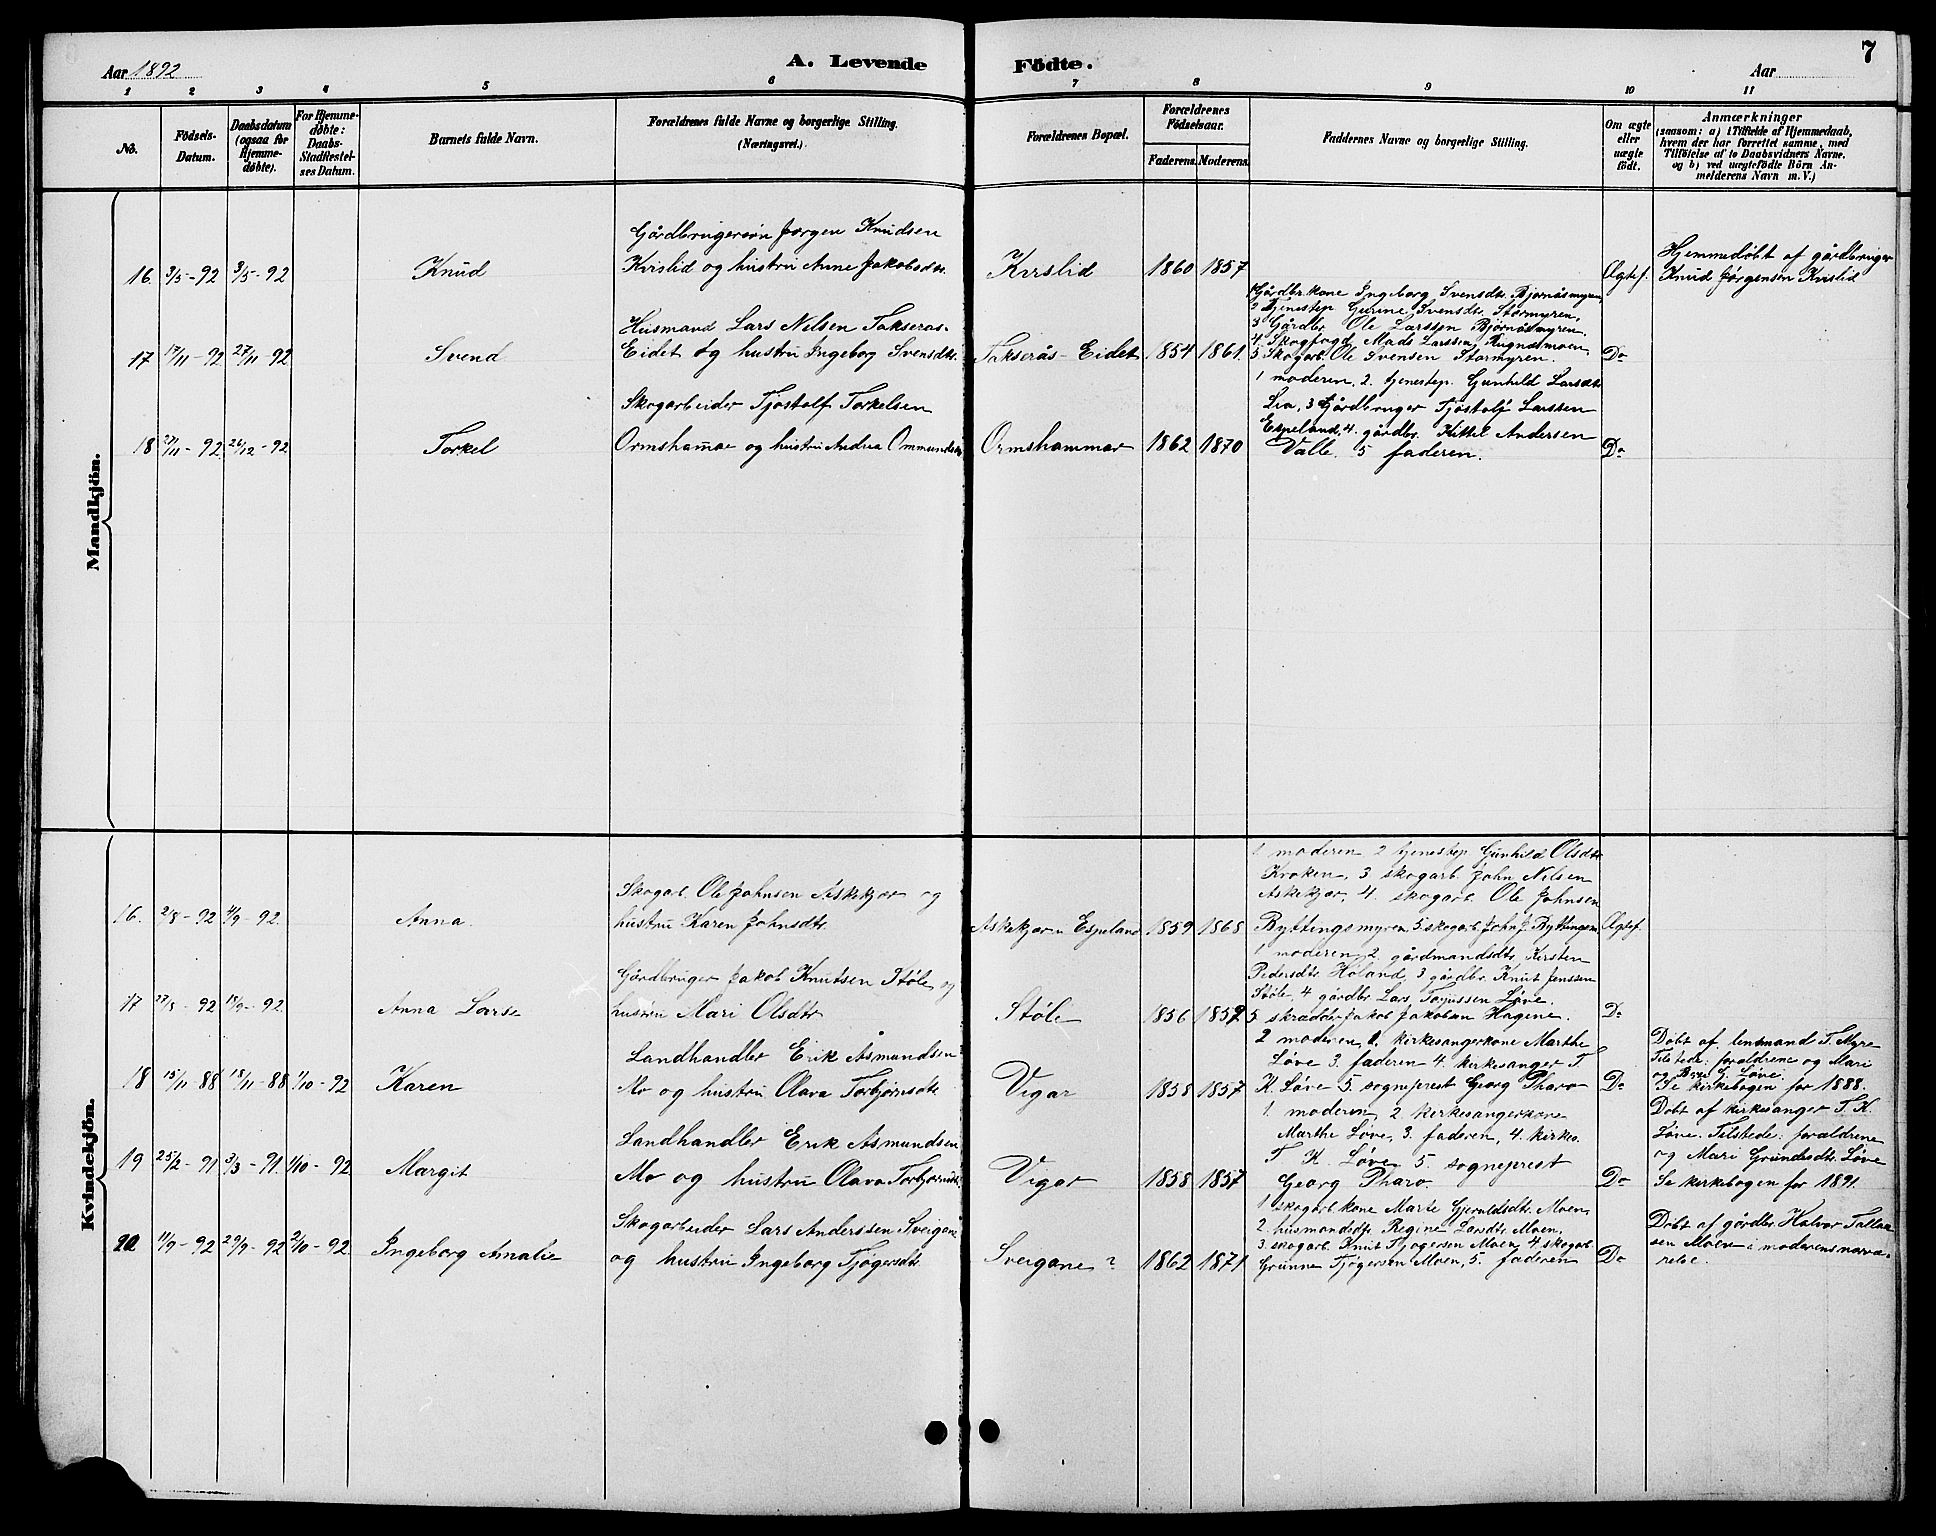 Aar 1892
A. Levende Födte.
Aar
7
1 2 3 4 5 6 7 8 9 10 11
No.
Födsels-Datum.
Daabsdatum (ogsaa for Hjemme-döbte).
For Hjemme-döbte: Daabs-Stadfæstel-ses Datum.
Barnets fulde Navn.
Forældrenes fulde Navne og borgerlige Stilling.
(Næringsvei.)
Forældrenes Bopæl.
Forældrenes Födselsaar.
Faderens. Moderens.
Faddernes Navne og borgerlige Stilling.
Om ægte eller uægte födt.
Anmærkninger
(saasom: a) i Tilfælde af Hjemmedaab,
hvem der har forrettet samme, med
Tilföielse af to Daabsvidners Navne,
og b) ved uægtefödte Börn An-
melderens Navn m. V.)
Mandkjön.
Gårdbrugersøn Jørgen Knudsen
16. 3/5-92 3/5-92 Knud Kvislid og hustru Anne Jakobsdtr. Kvislid 1860 1857 Ægtef.
Hjemmedøbt af gårdbruger
Knud Jørgensen Kvislid
Husmand Lars Nilsen Takserås-
17 17/11-92 27/11 92 Svend Eidet og hustru Ingeborg Svensdtr. Takserås-Eidet 1854 1861. Do
1 Gårdbr. kone Ingeborg Svensdtr. Bjørnåsmyren,
2 Tjenestep. Gurine Svensdtr. Stormyren,
3 Gårdbr. Ole Larssen Bjørnåsmyren
4 Skogfogd Mads Larssen Rugnåsmoen
5 Skogarb. Ole Svensen Stormyren.
Skogarbeider Tjøstolf Torkelsen
18 27/11-92 26/12-92 Torkel Ormshammar og hustru Andrea Ommundsdtr. Ormshammar 1862 1870 Do
1 moderen, 2. tjenestep. Gunhild Larsdtr.
Lia, 3 Gårdbruger Tjøstolf Larssen
Espeland, 4. gårdbr. Kittil Andersen
Valle. 5 faderen.
Kvindekjön.
Skogarb. Ole Johnsen Askekjær og
16. 2/8-92 4/9-92. Anna. hustru Karen Johnsdtr. Askekjær u. Espeland 1859 1868 Ægtef.
1 moderen 2 tjenestep. Gunhild Olsdtr.
Kroken, 3 skogarb. John Nilsen
Askekjær, 4. skogarb. Ole Johnsen
Byttingsmyren 5. skogarb. John J. Byttingsm.
Gårdbruger Jakob Knutsen Støle og
17 27/8-92 18/9-92. Anna Larse hustru Mari Olsdtr Støle 1856 1859 Do
1 moderen, 2. gårdmandsdtr. Kirsten
Pedersdtr. Høland, 3 gårdbr. Knut Jenssen
Støle, 4 gårdbr. Lars Tarjussen Løve.
5. skrædder Jakob Jakobsen Hagene.
Landhandler Erik Asmundsen
18 15/11 88 18/11-88 2/10-92 Karen Mo og hustru Olava Torbjørnsdtr. Vigar 1858 1857 Do
2 moderen, 1. kirkesangerkone Marthe
Løve 3. faderen 4. kirkesanger T.
K. Løve 5. sogneprest Georg Pharo
Døbt af lensmand T. Myre
Tilstede: forældrene og Mari
og G. Løve.
Se kirkebogen for 1888.
Landhandler Erik Asmundsen
19 25/2-91 3/3-91. 2/10-92 Margit Mo og hustru Olava Torbjørnsdtr. Vigar 1858 1857 Do
1. moderen, 2. kirkesangerkone
Marthe Løve, 3. faderen, 4. kirkes.
T. K. Løve 5. sogneprest
Georg Pharo.
Døbt af kirkesanger T. K.
Løve. Tilstede: forældrene
og Mari Gundesdtr. Løve
Se kirkebogen for 1891.
Skogarbeider Lars Anderssen Sveigane
20 11/9-92 29/9-92 2/10-92 Ingeborg Amalie og hustru Ingeborg Tjøgersdtr. Sveigane? 1862 1871 Do
1 skogarb. kone Marte Gjeruldsdtr. Moen,
2. husmandsdtr. Regine Larsdtr. Moen,
3. skogarb. Knut Tjøgersen Moen 4. skogarb.
Grunne Tjøgersen Moen, 5. faderen
Døbt af gårdbr. Halvor Tallak-
sen Moen i moderens nærvæ-
relse.